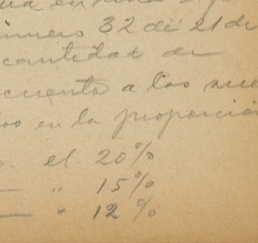 número 32 de 21 de
cantidad de
cuenta a los
en la proporción
el 20%
— " 15%
— " 12%